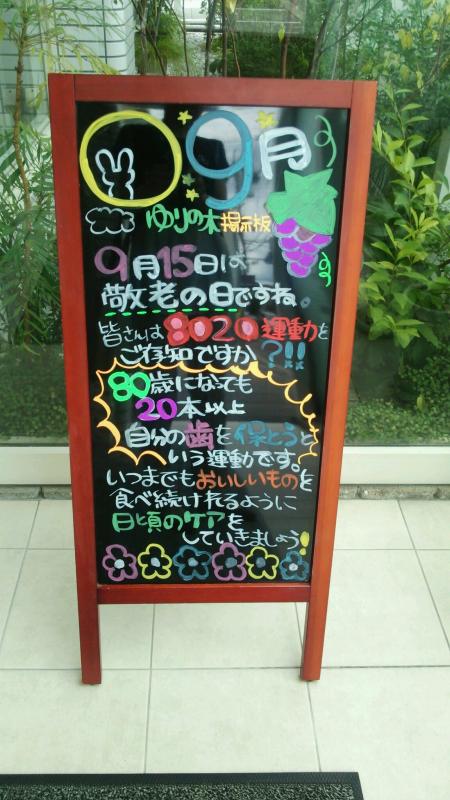 9月
ゆりの木掲示板
9月15日は
敬老の日ですね。
皆さんは8020運動を
ご存知ですか?!!
80歳になっても
20本以上
自分の歯を保とうと
いう運動です。
いつまでもおいしいものを
食べ続けれるように
日頃のケアを
していきましょう!